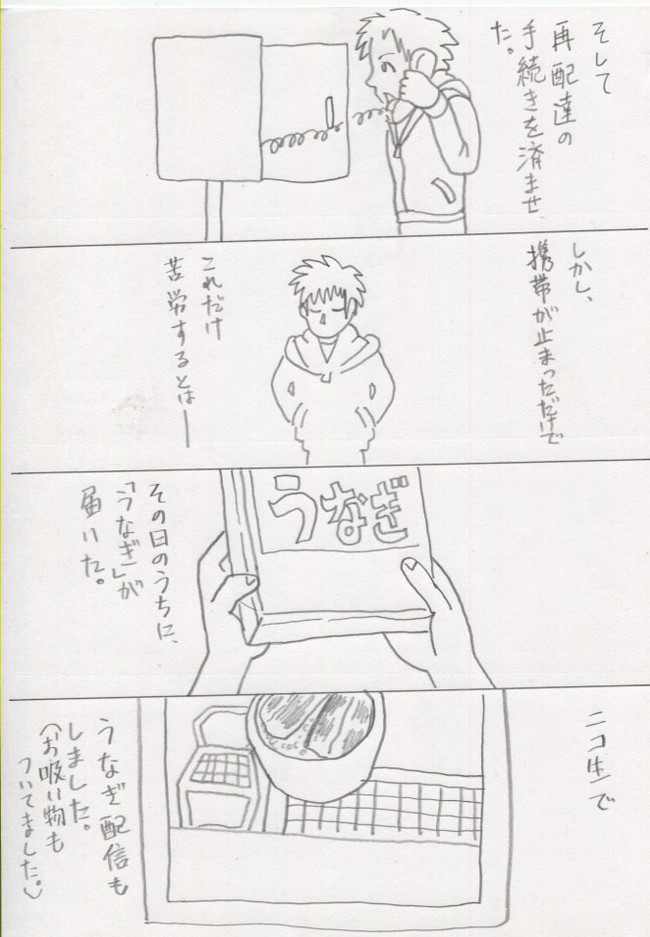 そして
再配達の
手続きを済ませ、
た。
しかし、
携帯が止まっただけで
これだけ
苦労するとは―
うなぎ
その日のうちに、
「うなぎ」が
届いた。
ニコ生で
うなぎ配信も
しました。
(お吸い物も
ついてました。)